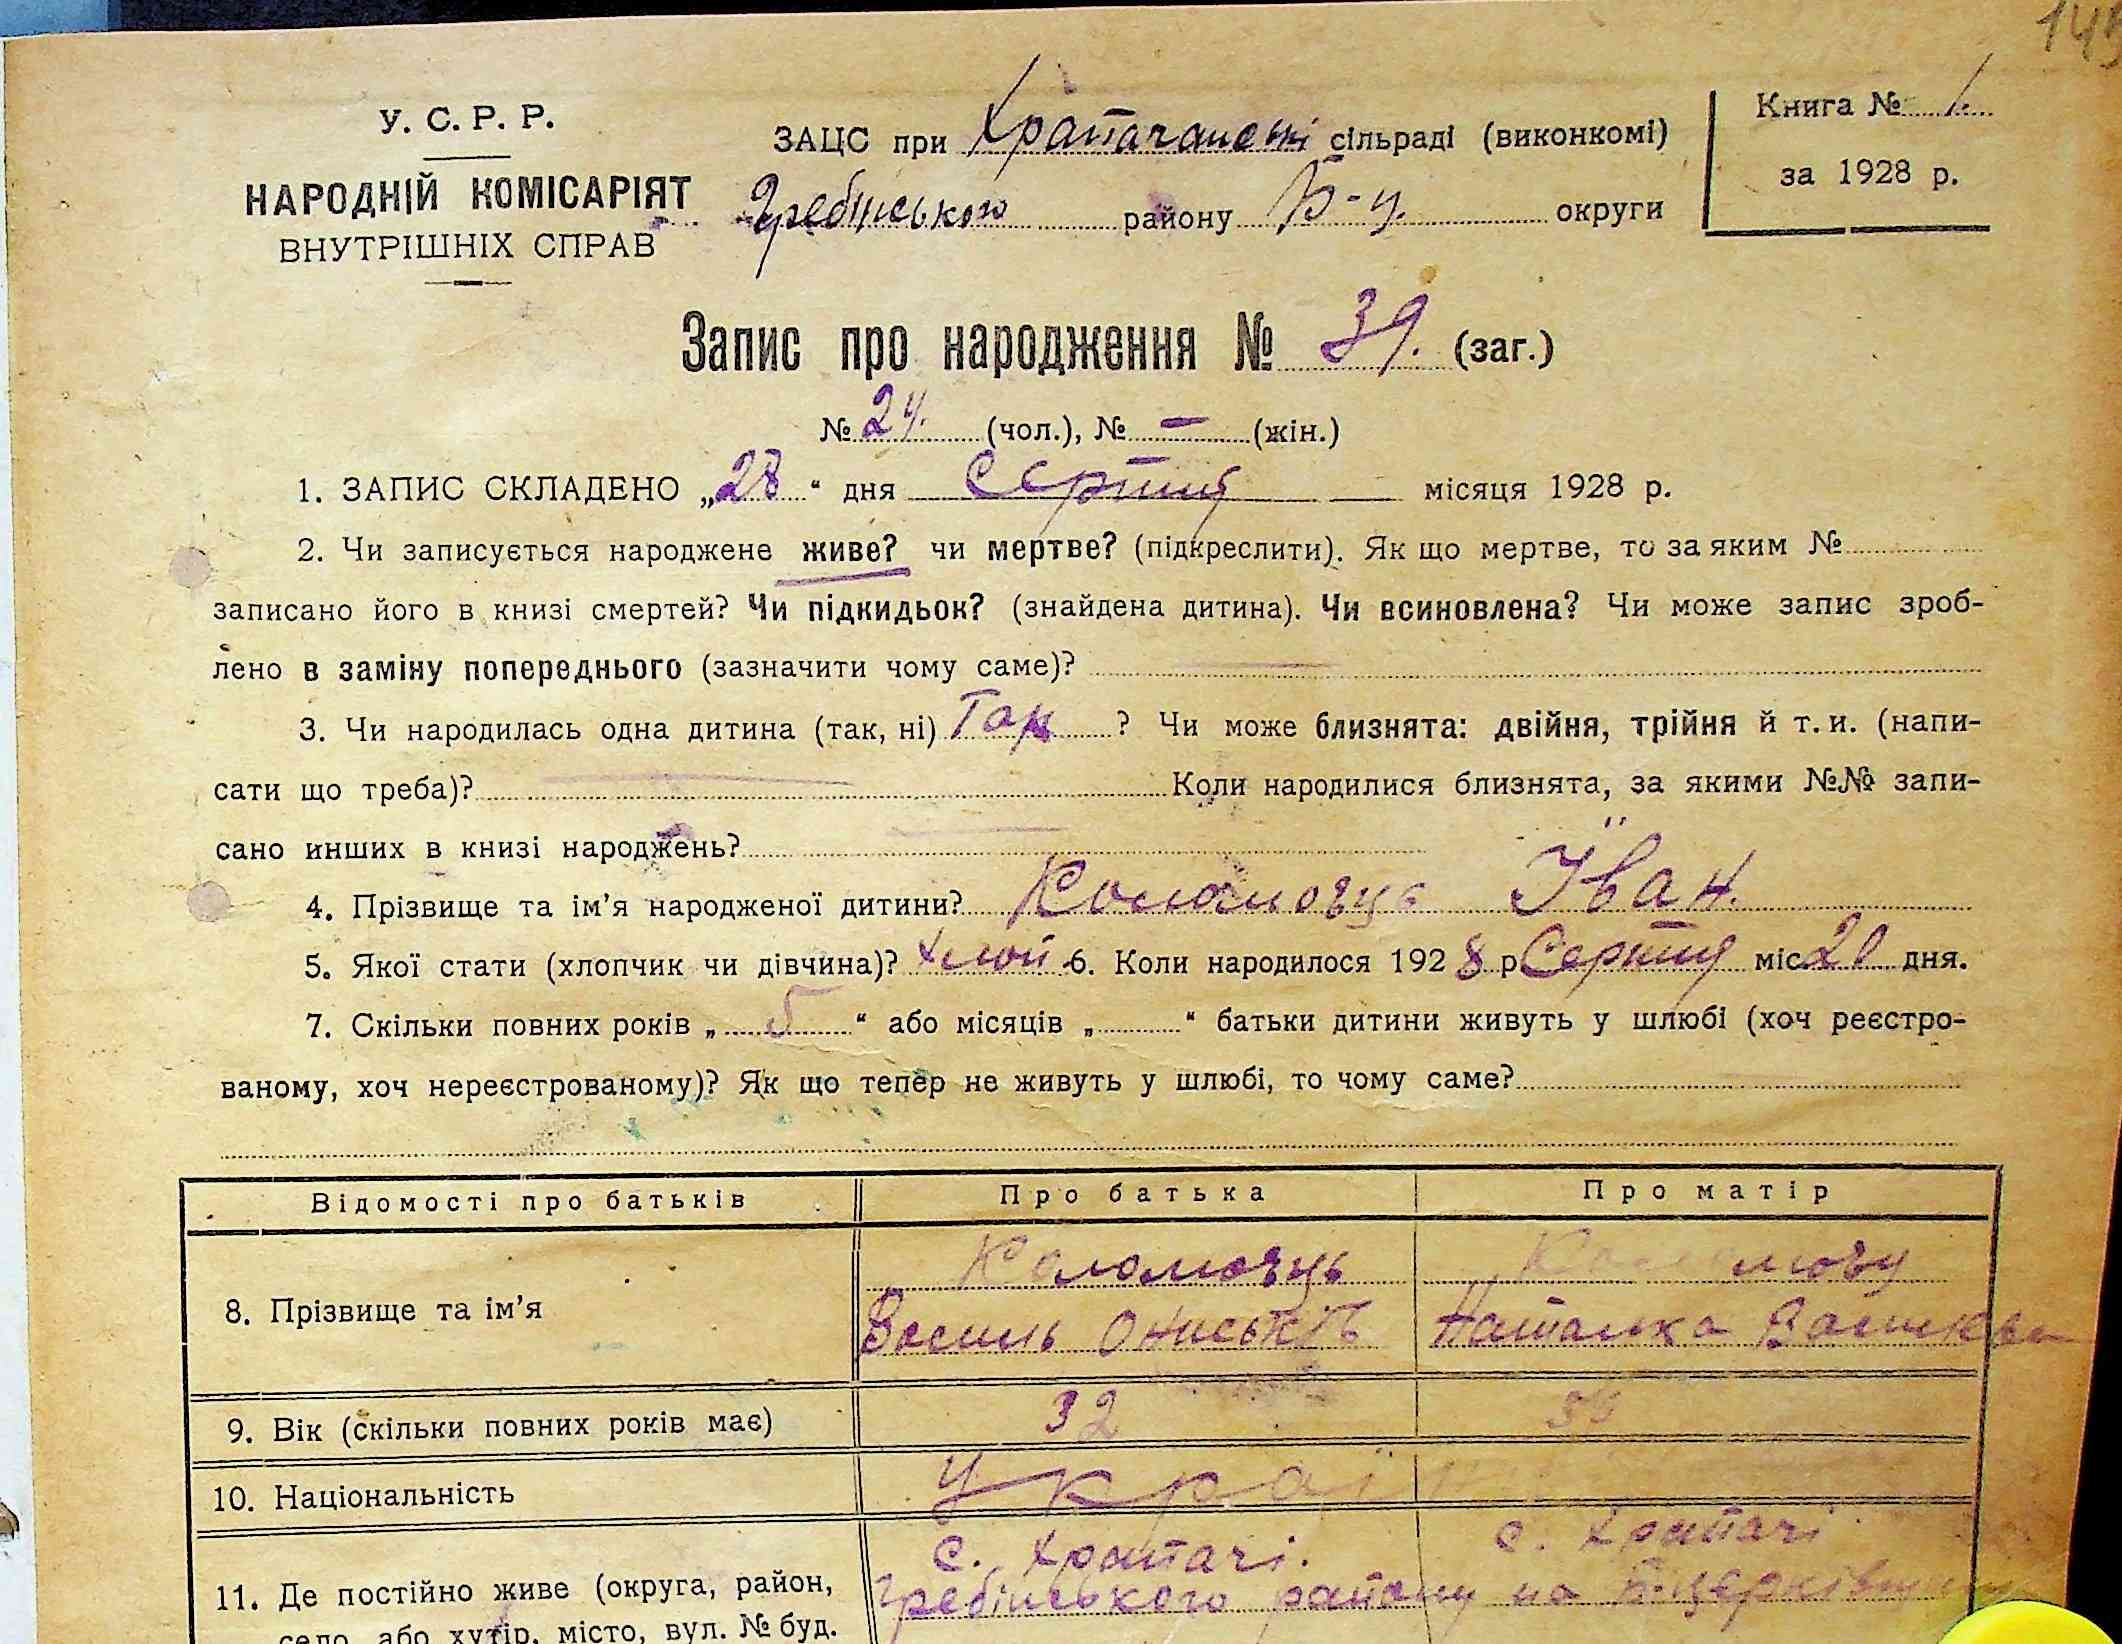 У. С. Р. Р.
НАРОДНІЙ КОМІСАРІЯТ
ВНУТРІШНІХ СПРАВ
ЗАЦС при Храпачанські сільраді (виконкомі)
Гребінського району Б-Ц. округи
Книга № 1.
за 1928 р.
Запис про народження № 39. (заг.)
№ 24. (чол.), № — (жін.)
1. ЗАПИС СКЛАДЕНО „28“ дня Серпня місяця 1928 р.
2. Чи записується народжене живе? чи мертве? (підкреслити). Як що мертве, то за яким №
записано його в книзі смертей? Чи підкидьок? (знайдена дитина). Чи всиновлена? Чи може запис зроб-
лено в заміну попереднього (зазначити чому саме)?
3. Чи народилась одна дитина (так, ні) Так ? Чи може близнята: двійня, трійня й т. и. (напи-
сати що треба)? Коли народилися близнята, за якими №№ запи-
сано инших в книзі народжень?
4. Прізвище та ім’я народженої дитини? Коломоєць Їван.
5. Якої стати (хлопчик чи дівчина)? Хлоп 6. Коли народилося 1928 р Серпня міс 20 дня.
7. Скільки повних років „5“ або місяців „ “ батьки дитини живуть у шлюбі (хоч реєстро-
ваному, хоч нереєстрованому)? Як що тепер не живуть у шлюбі, то чому саме?
Відомості про батьків Про батька Про матір
8. Прізвище та ім’я
Коломоєць
Василь Ониськів Наталька
9. Вік (скільки повних років має) 32
10. Національність Украї
11. Де постійно живе (округа, район,
село, або хутір, місто, вул. № буд.
с. Храпачі. с. Храпачі
Гребінського району на Б-Церківщину